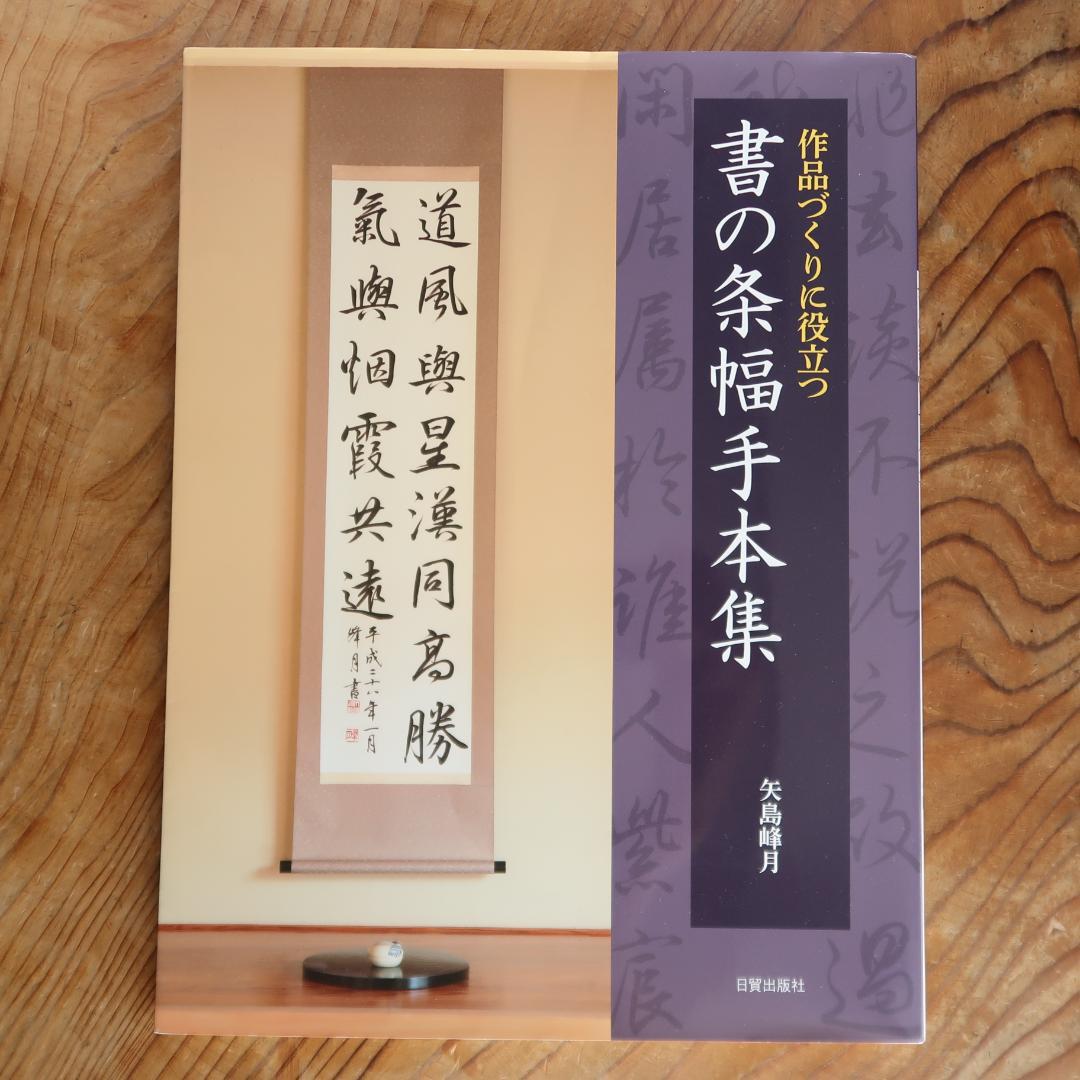 作品づくりに役立つ
書の条幅手本集
矢島峰月
日貿出版社
道風與星漢同高勝
氣與烟霞共遠
平成二十八年一月
峰月書
閑居属於誰人紫宸